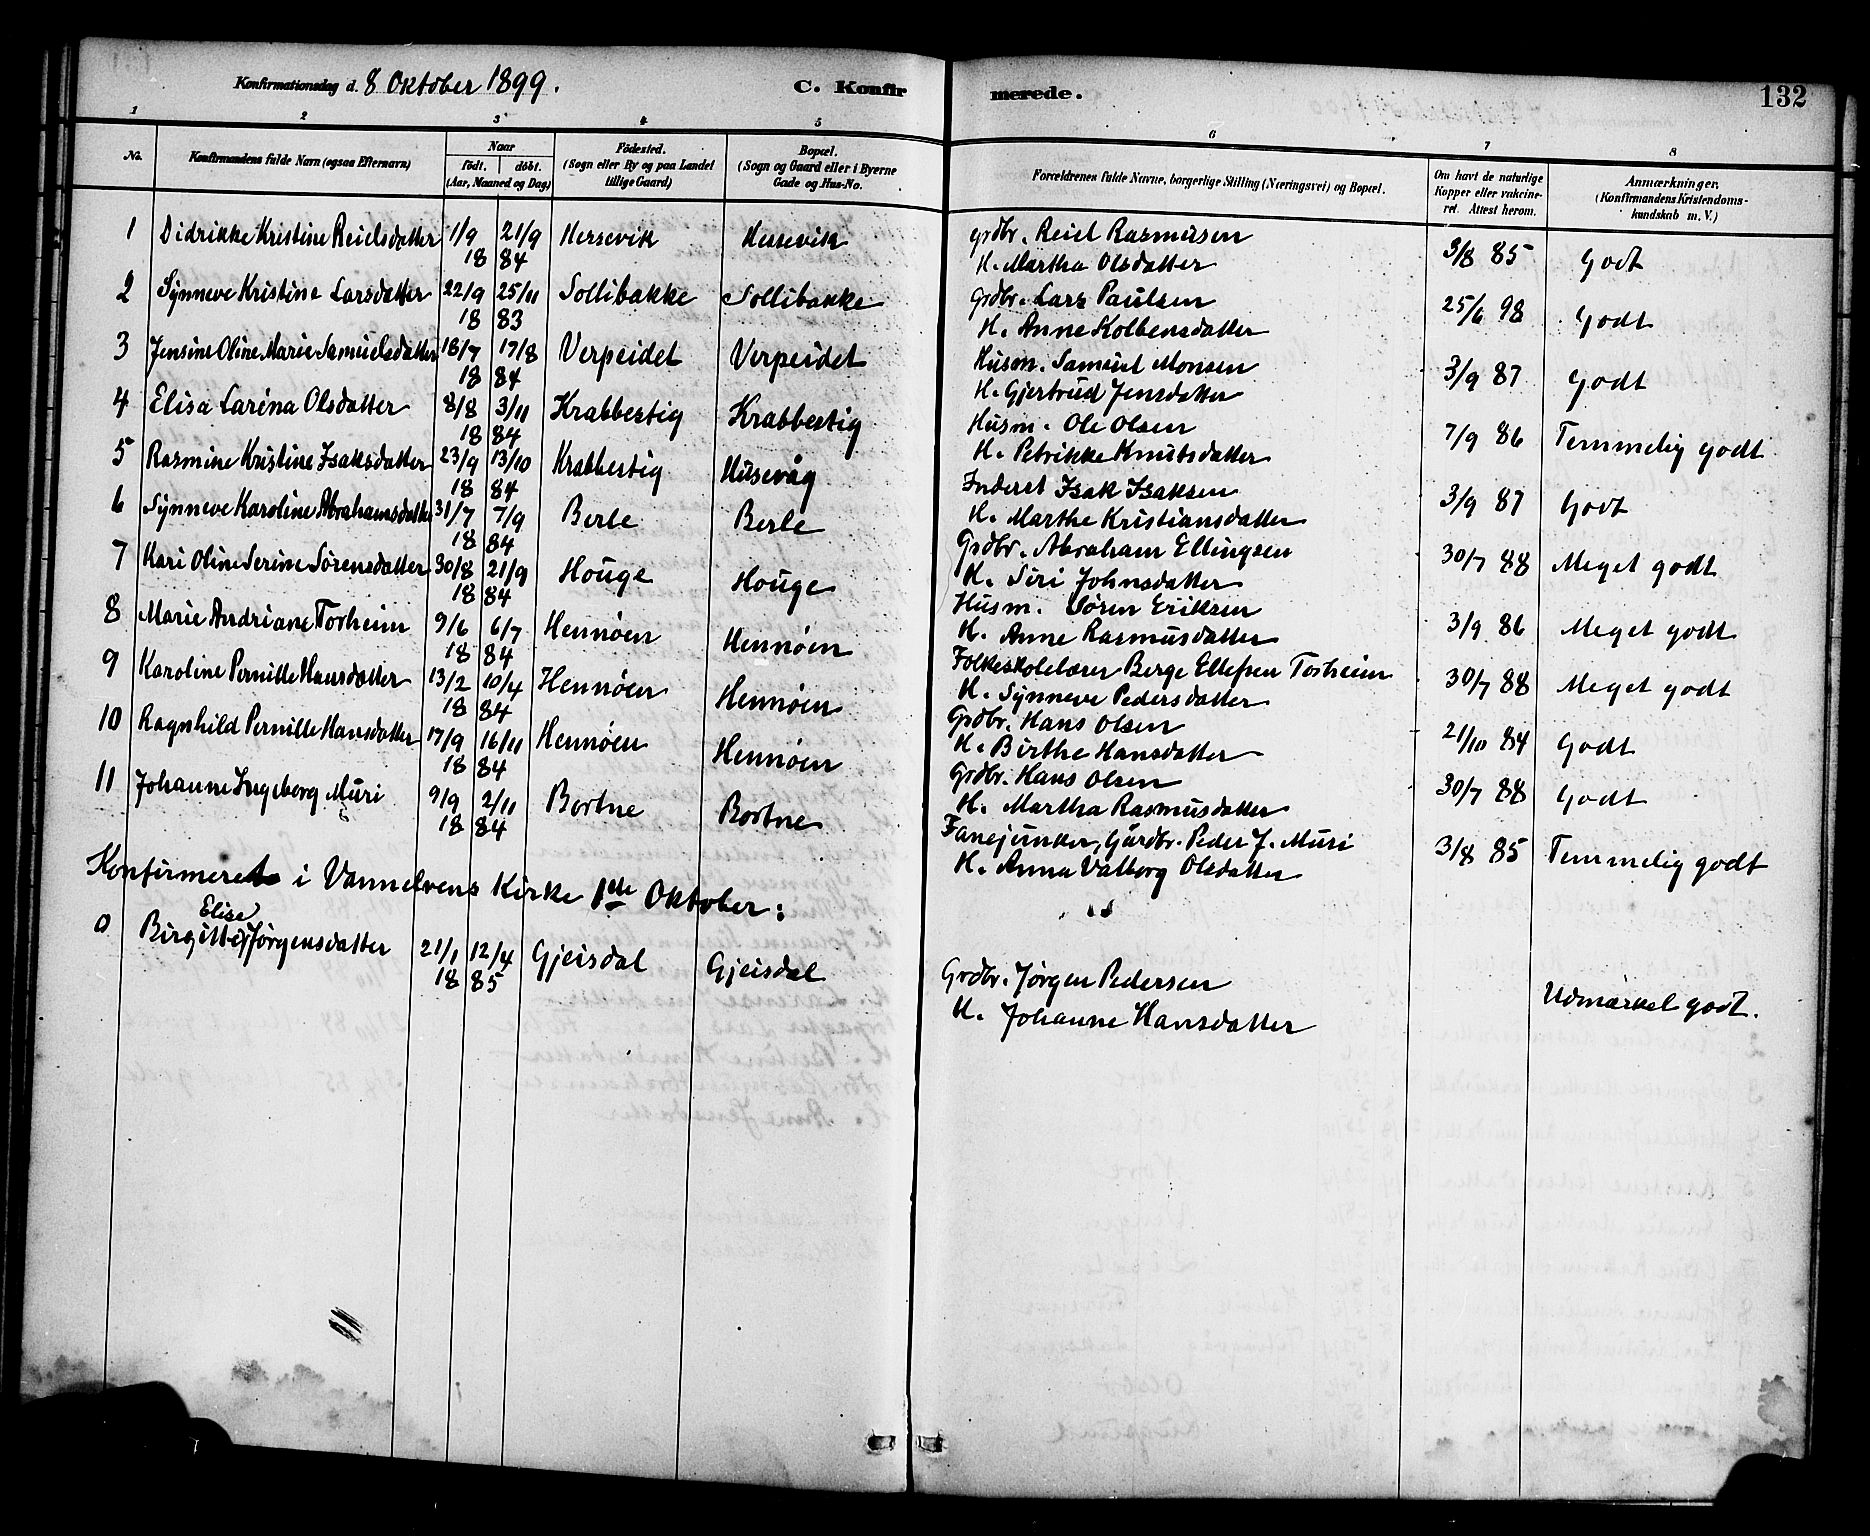 Konfirmationsdag d. 8 Oktober 1899.
C. Konfirmerede.
132
1 2 3 4 5 6 7 8
No.
Konfirmandens fulde Navn (ogsaa Efternavn)
Naar
födt. döbt.
(Aar, Maaned og Dag)
Födested.
(Sogn eller By og paa Landet
tillige Gaard)
Bopæl.
(Sogn og Gaard eller i Byerne
Gade og Hus-No.
Forældrenes fulde Navne, borgerlige Stilling (Næringsvei) og Bopæl.
Om havt de naturlige
Kopper eller vakcine-
ret. Attest herom.
Anmærkninger.
(Konfirmandens Kristendoms-
kundskab m. V.)
1 Didrikke Kristine Reielsdatter 1/9 21/9 Hessevik Hessevik grdbr. Reiel Rasmusen
18 84 H. Martha Olsdatter 3/8 85 Godt
2 Synneve Kristine Larsdatter 22/9 25/11 Sollibakke Sollibakke Grdbr. Lars Paulsen
18 83 H. Anne Kolbensdatter 25/6 98 Godt
3 Jensine Oline Marie Samuelsdatter 18/7 17/8 Verpeidet Verpeidet Husm. Samuel Monsen
18 84 H. Gjertrud Jensdatter 3/9 87 Godt
4 Elisa Larina Olsdatter 8/8 3/11 Krabbestig Krabbestig Husm. Ole Olsen
18 84 H. Petrikke Knutsdatter 7/9 86 Temmelig godt
5 Rasmine Kristine Isaksdatter 23/9 13/10 Krabbestig Husevåg Inderst Isak Isaksen
18 84 H. Marthe Kristiansdatter 3/9 87 Godt
6 Synneve Karoline Abrahamsdatter 31/7 7/9 Berle Berle Grdbr. Abraham Ellingsen
18 84 H. Siri Johnsdatter 30/7 88 Meget godt
7 Kari Oline Serine Sørensdatter 30/8 21/9 Houge Houge Husm. Søren Eriksen
18 84 H. Anne Rasmusdatter 3/9 86 Meget godt
8 Marie Andriane Torheim 9/6 6/7 Hennøen Hennøen Folkeskolelærer Berge Ellefsen Torheim
18 84 H. Synneve Pedersdatter 30/7 88 Meget godt
9 Karoline Pernille Hansdatter 13/2 10/4 Hennøen Hennøen Grdbr. Hans Olsen
18 84 H. Birthe Hansdatter 21/10 84 Godt
10 Ragnhild Pernille Hansdatter 17/9 16/11 Hennøen Hennøen Grdbr. Hans Olsen
18 84 H. Martha Rasmusdatter 30/7 88 Godt
11 Johanne Ingeborg Muri 9/9 2/11 Bortne Bortne Fanejunker, Gårdbr. Peder J. Muri
18 84 H. Anna Valborg Olsdatter 3/8 85 Temmelig godt
Konfirmeret i Vannelvens Kirke 1ste Oktober:
Elise
0 Birgitte Jørgensdatter 21/1 12/4 Gjeisdal Gjeisdal Grdbr. Jørgen Pedersen
18 85 H. Johanne Hansdatter Udmærket godt.